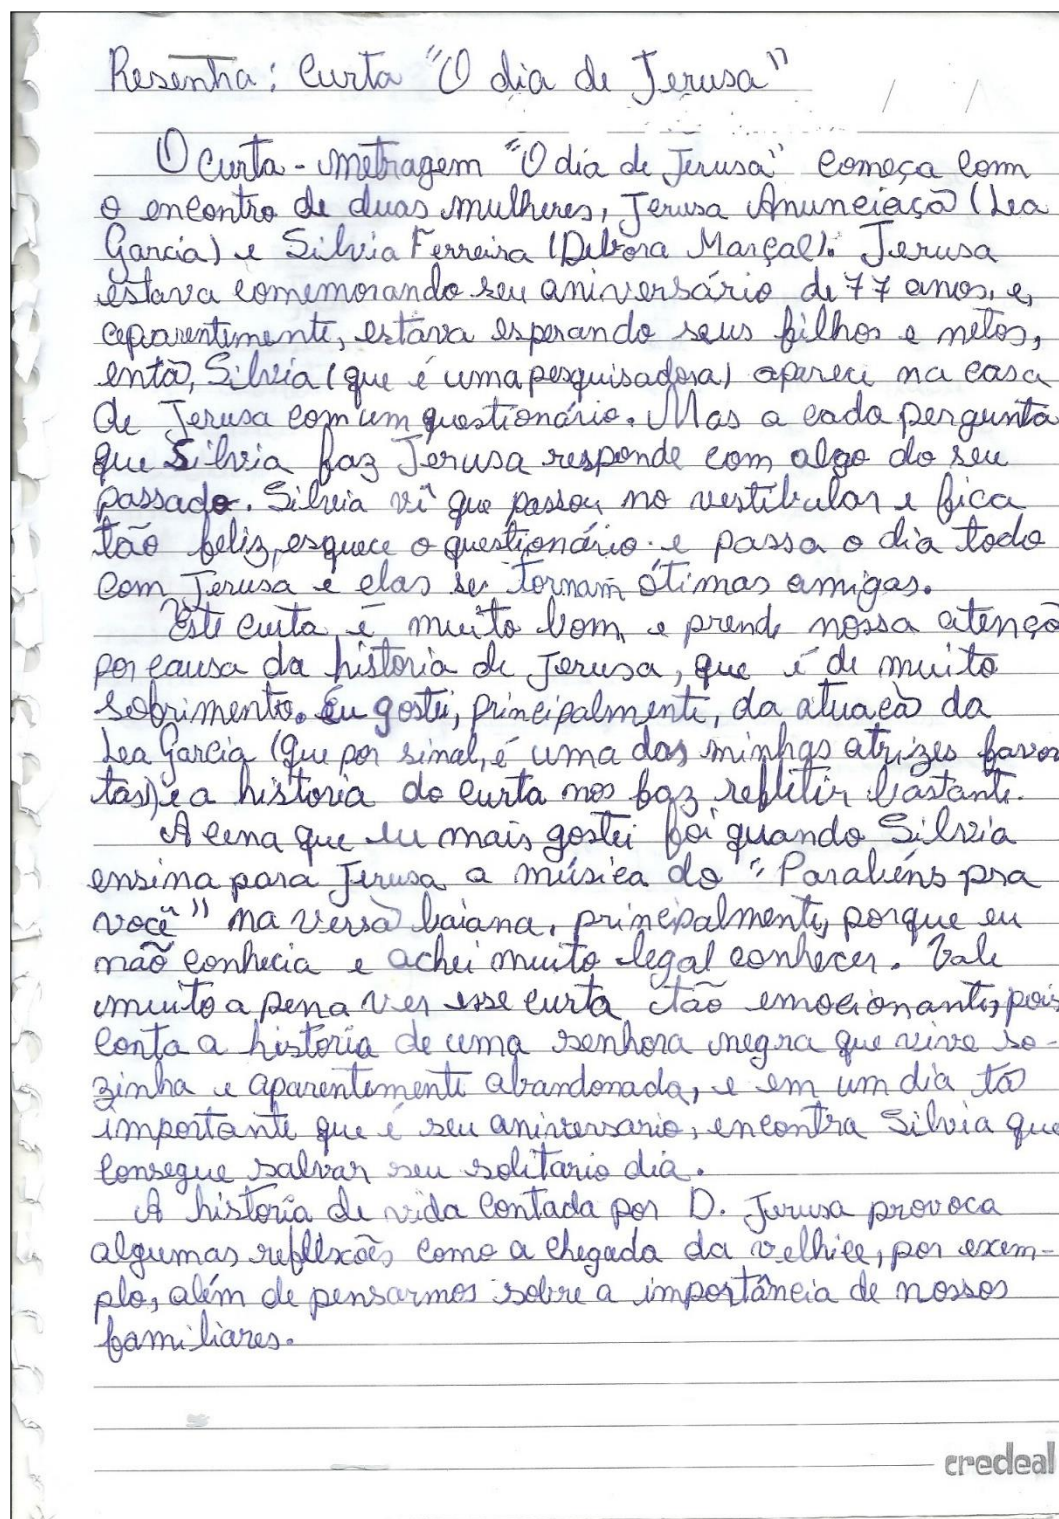 Resenha: Curta "O dia de Jerusa"
O curta-metragem "O dia de Jerusa" começa com
o encontro de duas mulheres, Jerusa Anunciação (Lea
Garcia) e Silvia Ferreira (Debora Marçal). Jerusa
estava comemorando seu aniversário de 77 anos, e,
aparentemente, estava esperando seus filhos e netos,
então, Silvia (que é uma pesquisadora) aparece na casa
de Jerusa com um questionário. Mas a cada pergunta
que Silvia faz Jerusa responde com algo do seu
passado. Silvia vê que passou no vestibular e fica
tão feliz, esquece o questionário e passa o dia todo
com Jerusa e elas se tornam ótimas amigas.
Este curta é muito bom, e prende nossa atenção
por causa da historia de Jerusa, que é de muito
sofrimento. Eu gostei, principalmente, da atuação da
Lea Garcia (que por sinal, é uma das minhas atrizes favori
tas) e a historia do curta nos faz refletir bastante.
A cena que eu mais gostei foi quando Silvia
ensina para Jerusa a música do "Parabéns pra
você" na versão baiana, principalmente, porque eu
não conhecia e achei muito legal conhecer. Vale
muito a pena ver esse curta tão emocionante, pois
conta a história de uma senhora negra que vive so-
zinha e aparentemente abandonada, e em um dia tão
importante que é seu aniversario, encontra Silvia que
consegue salvar seu solitario dia.
A história de vida contada por D. Jerusa provoca
algumas reflexões como a chegada da velhice, por exem-
plo, além de pensarmos sobre a importância de nossos
familiares.
credeal